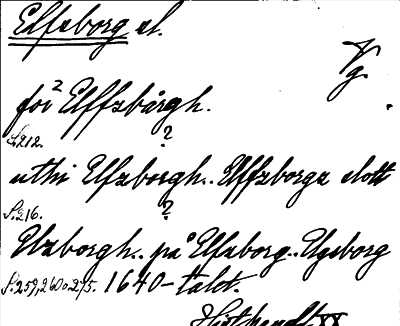 Elfsborg sl.
Vg.
för Elffzbårgh.
S. 212. ?
uthi Elfzborgh.. Elffzborgz slott
S. 216. ?
Elzborgh.. på Elfzborg.. Elgsborg
S. 259, 260 o. 275. 1640-talet.